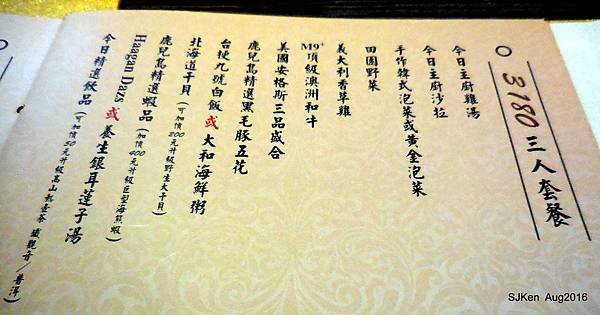 3780 三人套餐
今日主廚雞湯
今日主廚沙拉
手作韓式泡菜或黃金泡菜
田園野菜
義大利香草雞
M9+頂級澳洲和牛
美國安格斯三品盛合
鹿兒島精選黑毛豚五花
台梗九號白飯 或 大和海鮮粥
北海道干貝 (可加價200元升級野生大干貝)
鹿兒島精選蝦品 (加價400元升級巨型海熊蝦)
Haagen Dazs 或 養生銀耳蓮子湯
今日精選飲品 (可加價50元升級高山烏壺茶 鐵觀音/普洱)
SJKen Aug2016